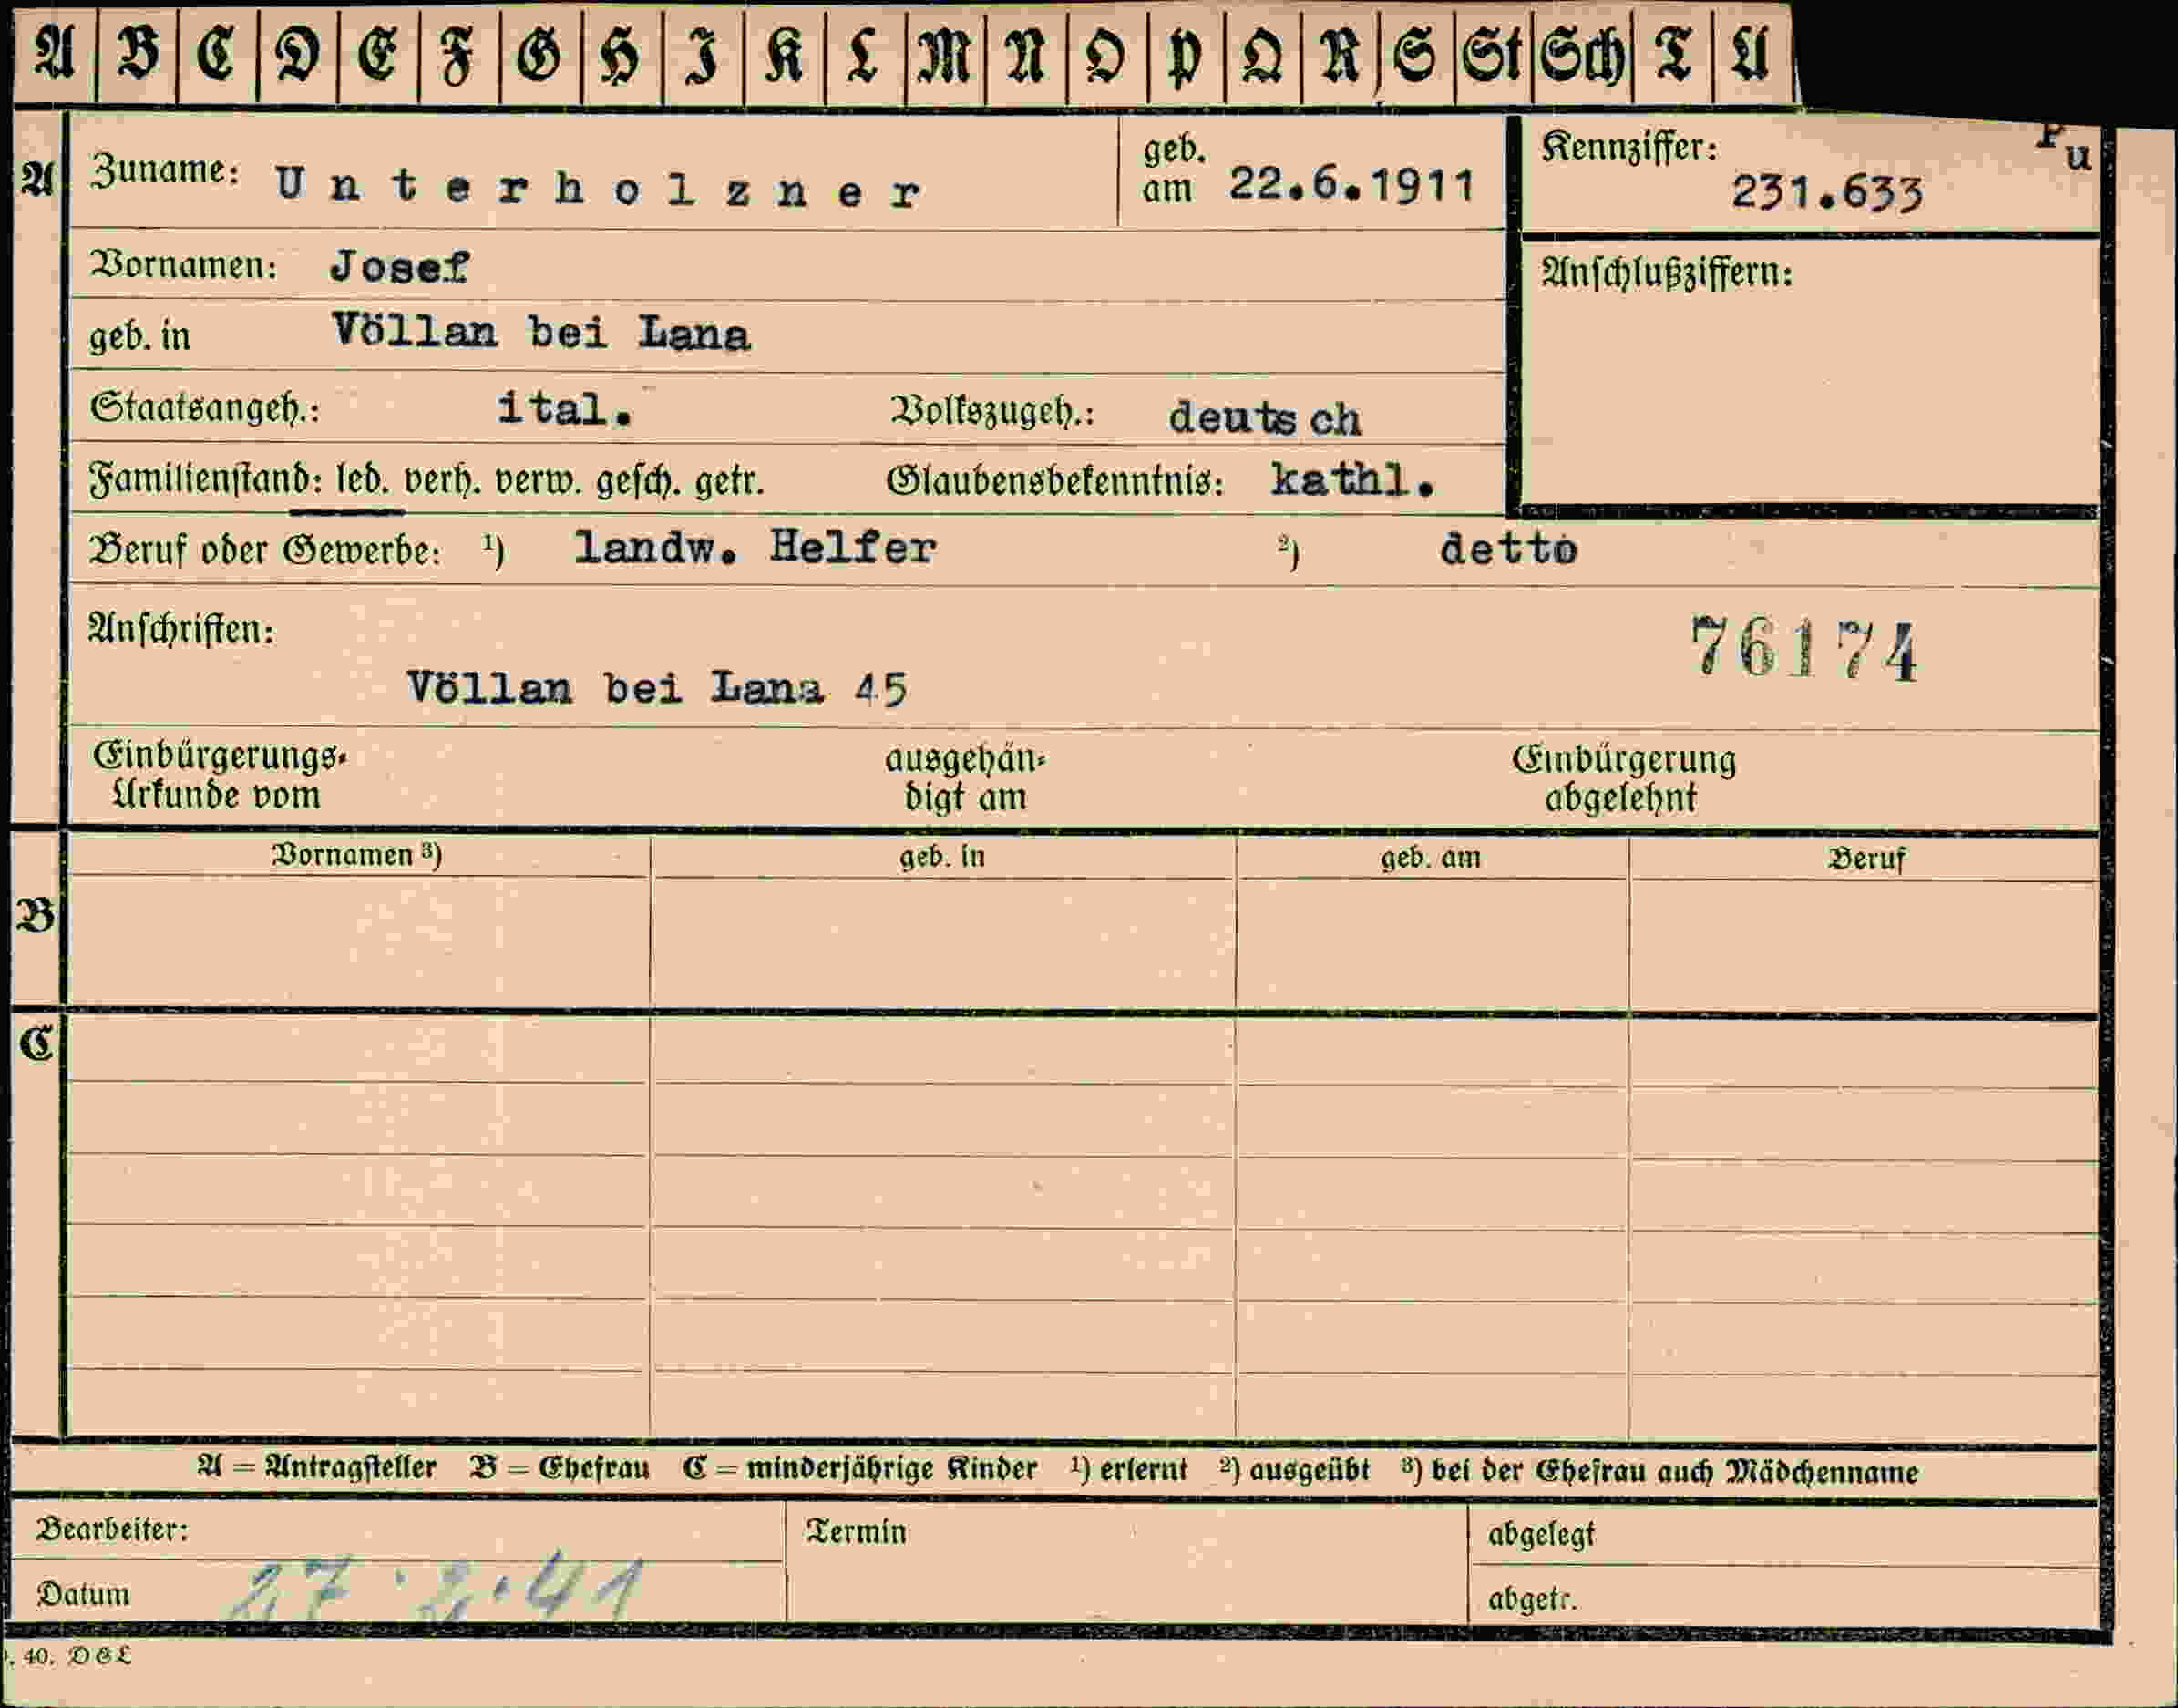 A B C D E F G H I K L M N O P Q R S St Sch T U
A Zuname: Unterholzner geb. am 22.6.1911 Kennziffer: 231.633
Vornamen: Josef Anschlußziffern:
geb. in Völlan bei Lana
Staatsangeh.: ital. Volkszugeh.: deutsch
Familienstand: led. verh. verw. gesch. getr. Glaubensbekenntnis: kathl.
Beruf oder Gewerbe: ¹) landw. Helfer ²) detto
Anschriften: 76174
Völlan bei Lana 45
Einbürgerungs- ausgehän- Einbürgerung
Urkunde vom digt am abgelehnt
Vornamen ³) geb. in geb. am Beruf
B
C
A = Antragsteller B = Ehefrau C = minderjährige Kinder ¹) erlernt ²) ausgeübt ³) bei der Ehefrau auch Mädchenname
Bearbeiter: Termin abgelegt
Datum 27.2.41 abgetr.
40. D&L